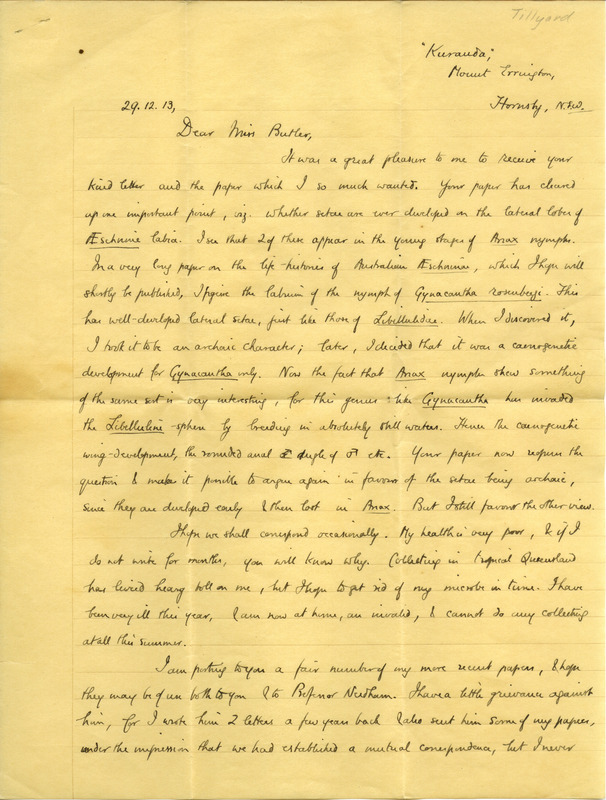 Tillyard
"Kuranda",
Mount Errington,
29.12.13, Hornsby, N.S.W.
Dear Miss Butler,
It was a great pleasure to me to receive your
kind letter and the paper which I so much wanted. Your paper has cleared
up one important point, viz. whether setae are ever developed on the lateral lobes of
Æschnine labia. I see that 2 of these appear in the young stages of Anax nymphs.
In a very long paper on the life-histories of Australian Æschninae, which I hope will
shortly be published, I figure the labium of the nymph of Gynacantha rosenbergi. This
has well-developed lateral setae, just like those of Libellulidae. When I discovered it,
I took it to be an archaic character; later, I decided that it was a caenogenetic
development for Gynacantha only. Now the fact that Anax nymphs shew something
of the same sort is very interesting, for this genus like Gynacantha has invaded
the Libelluline sphere by breeding in absolutely still water. Hence the caenogenetic
wing-development, the rounded anal angle of ♂ etc. Your paper now reopens the
question & makes it possible to argue again in favour of the setae being archaic,
since they are developed early & then lost in Anax. But I still favour the other view.
I hope we shall correspond occasionally. My health is very poor, & if I
do not write for months, you will know why. Collecting in tropical Queensland
has levied heavy toll on me, but I hope to get rid of my microbe in time. I have
been very ill this year, & am now at home, an invalid, & cannot do any collecting
at all this summer.
I am posting to you a fair number of my more recent papers, & hope
they may be of use both to you & to Professor Needham. I have a little grievance against
him, for I wrote him 2 letters a few years back & also sent him some of my papers,
under the impression that we had established a mutual correspondence, but I never